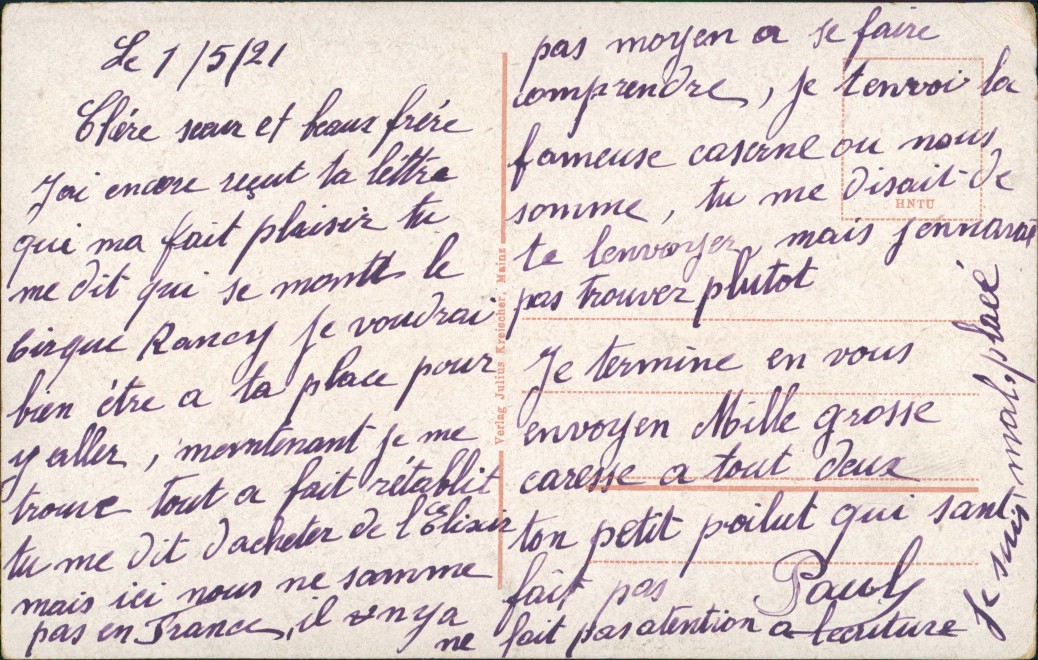 Le 1/5/21
Chére seaur et beaux frére
J'ai encore reçut ta léttre
qui ma fait plaisir tu
me dit qui se monte le
Cirque Rancy je voudrai
bien être a ta place pour
y aller, maintenant je me
trouve tout a fait rétablit
tu me dit dacheter de l'Elixir
mais ici nous ne somme
pas en France, il en y a
ne
pas moyen a se faire
comprendre, je tenvoi la
fameuse caserne ou nous
somme, tu me disait de
te lenvoyer, mais jennarai
pas trouver plutot
Je termine en vous
envoyen Mille grosse
caresse a tout deux
ton petit poilut qui sant
fait pas Pauly
fait pas atention a lecriture
Je suis mal placé
HNTU
Verlag Julius Kreischer, Mainz